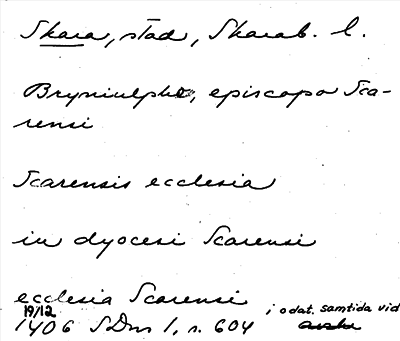 Skara, stad, Skarab. l.
Bryniulpho, episcopo Sca-
rensi
Scarensis ecclesia
in dyocesi Scarensi
ecclesia Scarensi
19/12 i odat. samtida vid
1406 SDns 1, s. 604